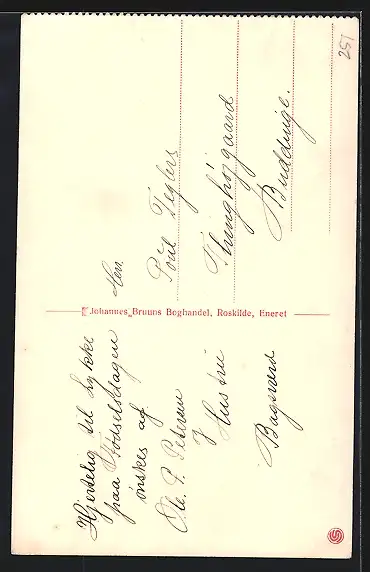 Hjertelig til Lykke
paa Fødselsdagen
ønskes af
Ole. P. Petersen
& Hustru
Bagsværd
Johannes Bruuns Boghandel, Roskilde, Eneret
Herr
Poul Teglers
Thinghøjgaard
Buddinge.
251